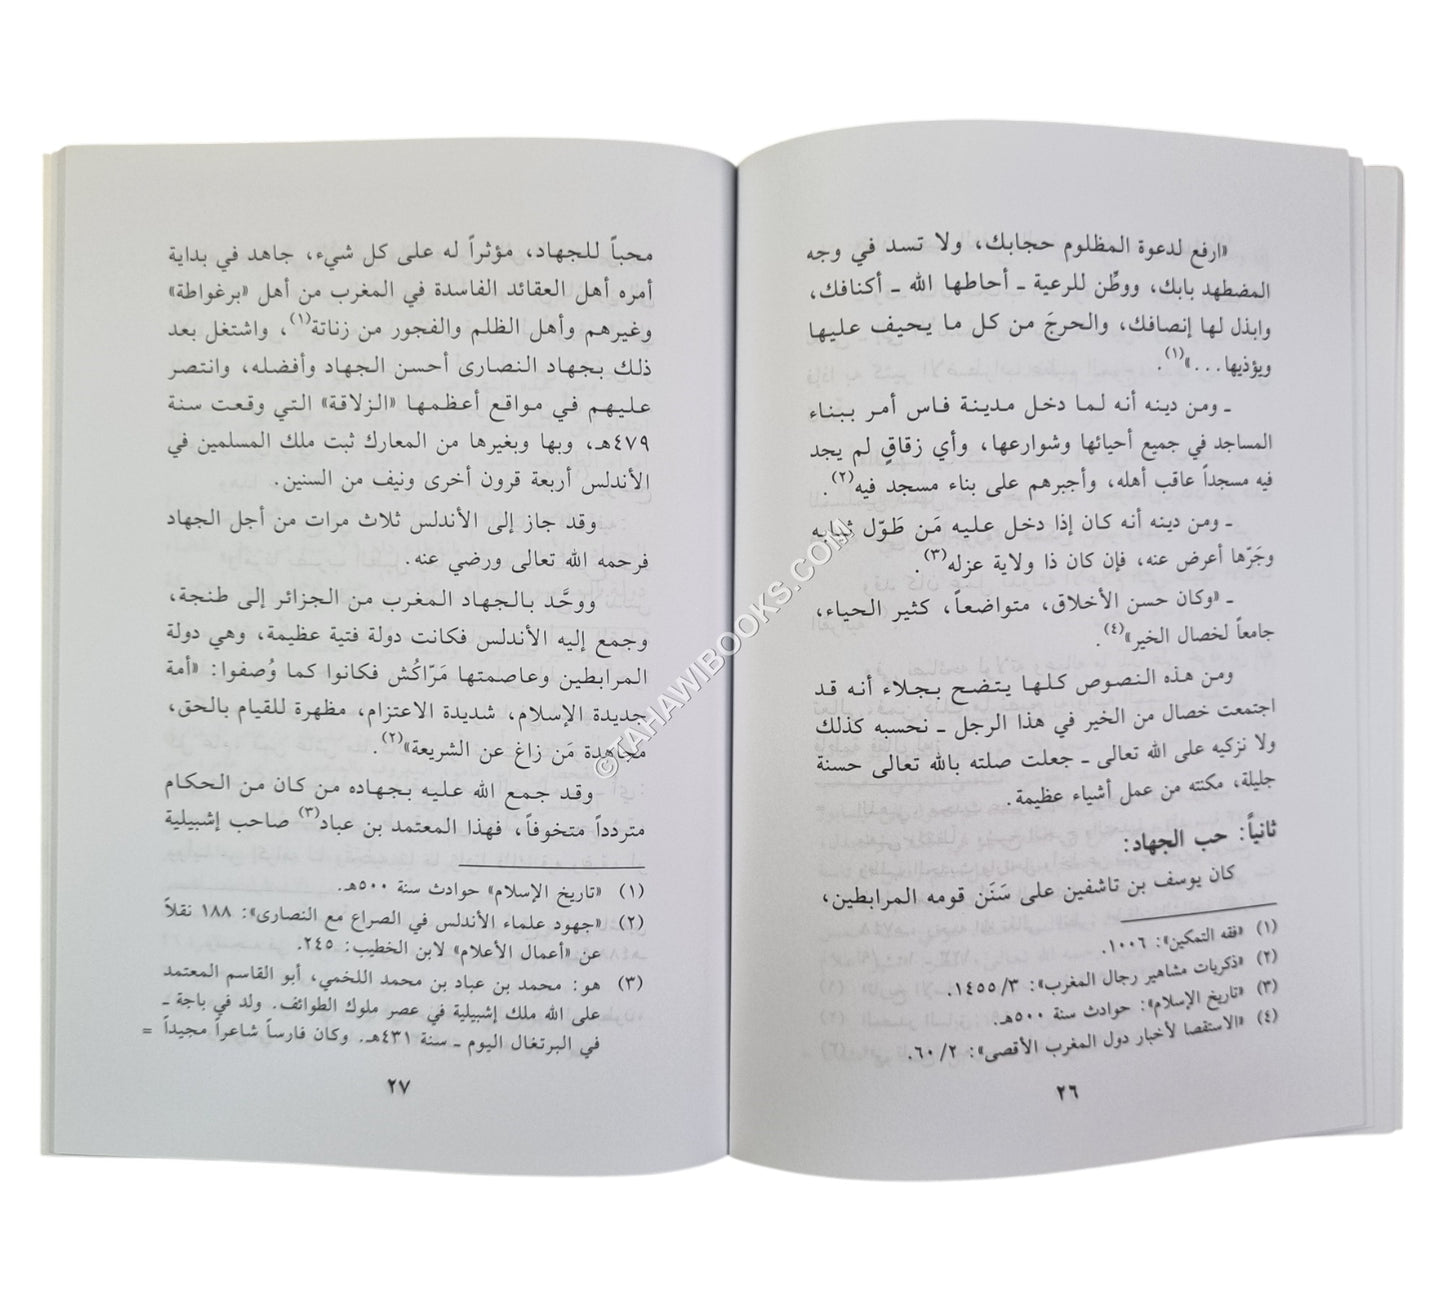 «ارفع لدعوة المظلوم حجابك، ولا تسد في وجه
المضطهد بابك، ووطِّن للرعية ـ أحاطها الله ـ أكنافك،
وابذل لها إنصافك، والحرجَ من كل ما يحيف عليها
ويؤذيها...»(١).
ـ ومن دينه أنه لما دخل مدينة فاس أمر ببناء
المساجد في جميع أحيائها وشوارعها، وأي زقاقٍ لم يجد
فيه مسجداً عاقب أهله، وأجبرهم على بناء مسجد فيه(٢).
ـ ومن دينه أنه كان إذا دخل عليه مَن طَوّل ثيابه
وجَرّها أعرض عنه، فإن كان ذا ولاية عزله(٣).
ـ «وكان حسن الأخلاق، متواضعاً، كثير الحياء،
جامعاً لخصال الخير»(٤).
ومن هذه النصوص كلها يتضح بجلاء أنه قد
اجتمعت خصال من الخير في هذا الرجل ـ نحسبه كذلك
ولا نزكيه على الله تعالى ـ جعلت صلته بالله تعالى حسنة
جليلة، مكنته من عمل أشياء عظيمة.
ثانياً: حب الجهاد:
كان يوسف بن تاشفين على سَنَن قومه المرابطين،
(١) «فقه التمكين»: ١٠٠٦.
(٢) «ذكريات مشاهير رجال المغرب»: ٣/ ١٤٥٥.
(٣) «تاريخ الإسلام»: حوادث سنة ٥٠٠هـ.
(٤) «الاستقصا لأخبار دول المغرب الأقصى»: ٢/ ٦٠.
٢٦
محباً للجهاد، مؤثراً له على كل شيء، جاهد في بداية
أمره أهل العقائد الفاسدة في المغرب من أهل «برغواطة»
وغيرهم وأهل الظلم والفجور من زناتة(١)، واشتغل بعد
ذلك بجهاد النصارى أحسن الجهاد وأفضله، وانتصر
عليهم في مواقع أعظمها «الزلاقة» التي وقعت سنة
٤٧٩هـ، وبها وبغيرها من المعارك ثبت ملك المسلمين في
الأندلس أربعة قرون أخرى ونيف من السنين.
وقد جاز إلى الأندلس ثلاث مرات من أجل الجهاد
فرحمه الله تعالى ورضي عنه.
ووحَّد بالجهاد المغرب من الجزائر إلى طنجة،
وجمع إليه الأندلس فكانت دولة فتية عظيمة، وهي دولة
المرابطين وعاصمتها مَرّاكُش فكانوا كما وُصفوا: «أمة
جديدة الإسلام، شديدة الاعتزام، مظهرة للقيام بالحق،
مجاهدة مَن زاغ عن الشريعة»(٢).
وقد جمع الله عليه بجهاده من كان من الحكام
متردداً متخوفاً، فهذا المعتمد بن عباد(٣) صاحب إشبيلية
(١) «تاريخ الإسلام» حوادث سنة ٥٠٠هـ.
(٢) «جهود علماء الأندلس في الصراع مع النصارى»: ١٨٨ نقلاً
عن «أعمال الأعلام» لابن الخطيب: ٢٤٥.
(٣) هو: محمد بن عباد بن محمد اللخمي، أبو القاسم المعتمد
على الله ملك إشبيلية في عصر ملوك الطوائف. ولد في باجة ـ
في البرتغال اليوم ـ سنة ٤٣١هـ. وكان فارساً شاعراً مجيداً =
٢٧
©TAHAWIBOOKS.COM